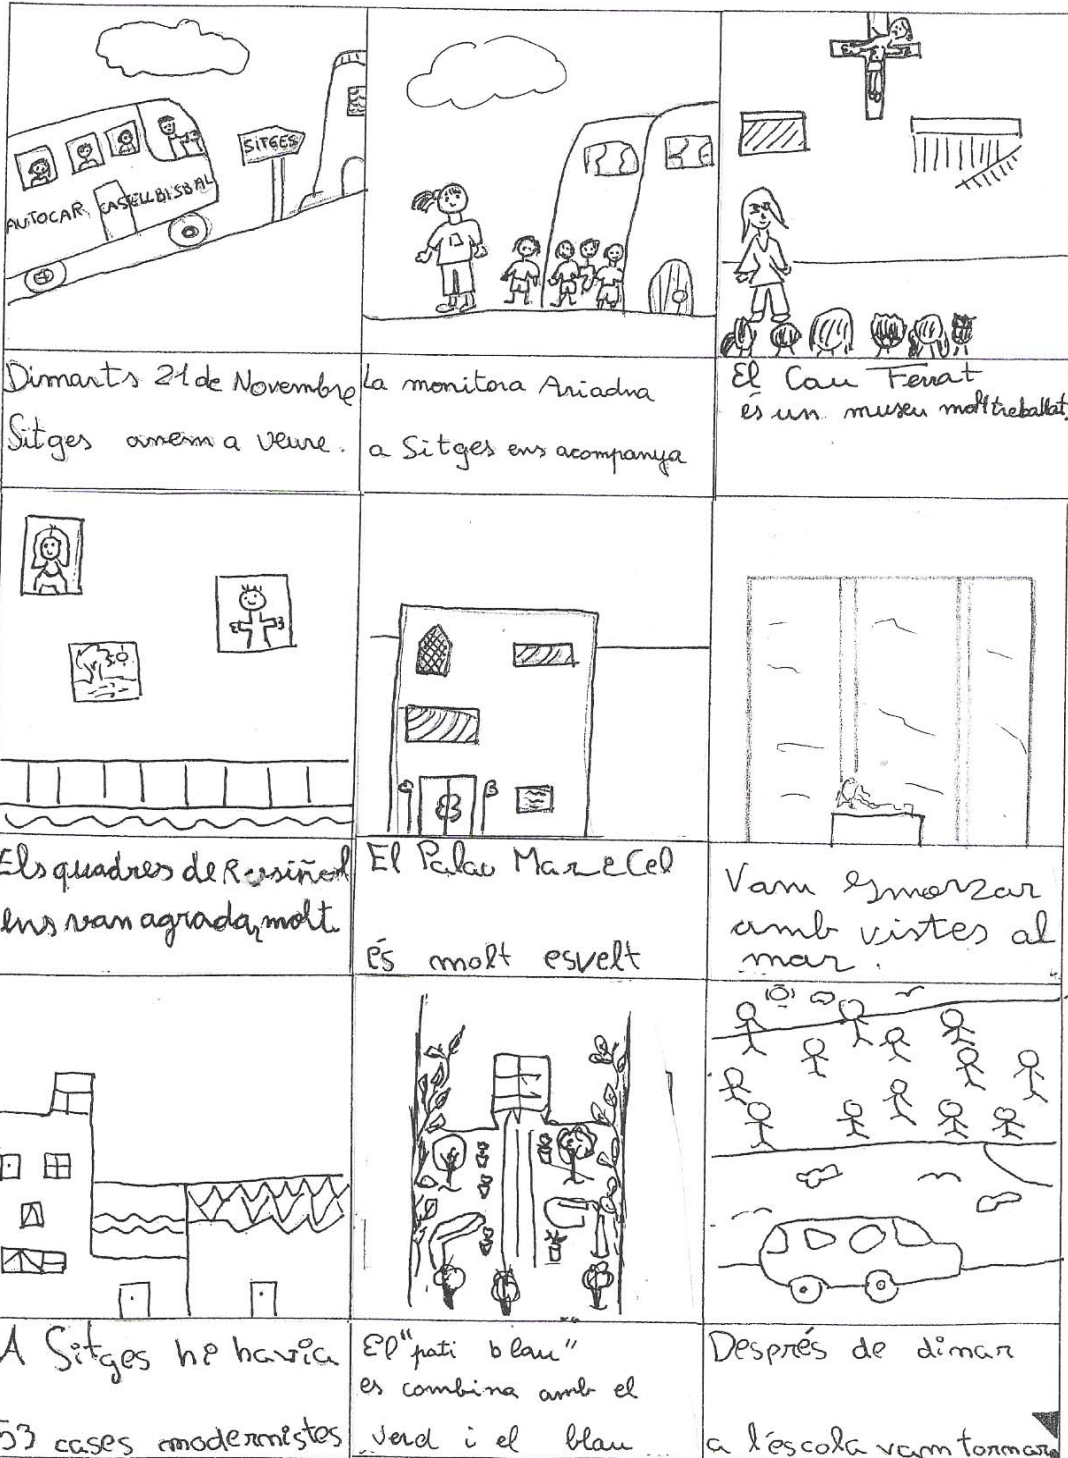 SITGES
AUTOCAR CASELLBISBAL
Dimarts 21 de Novembre
Sitges anem a veure.
La monitora Ariadna
a Sitges ens acompanya
El Cau Ferrat
és un museu molt treballat.
Els quadres de Rusiñol
ens van agradar molt.
El Palau Maricel
és molt esvelt
Vam esmorzar
amb vistes al
mar.
A Sitges hi havia
53 cases modernistes
El "pati blau"
es combina amb el
verd i el blau
Després de dinar
a l'escola vam tornar